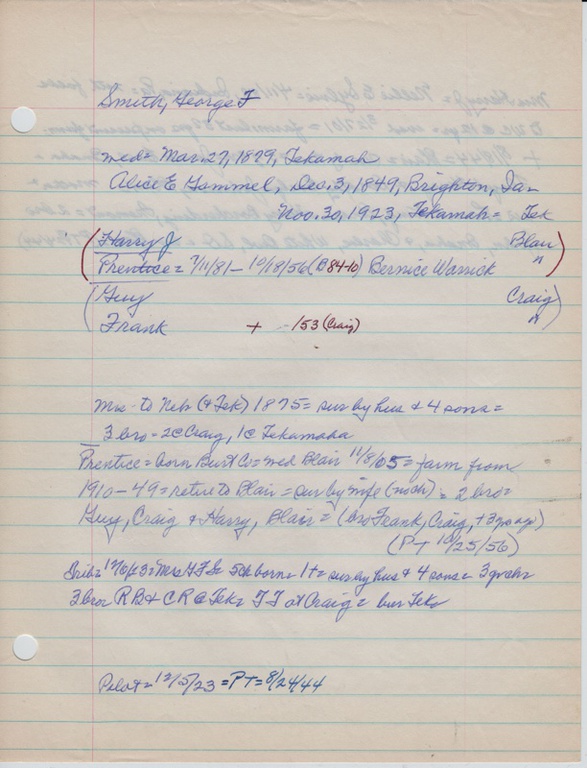 Smith, George F
med= Mar. 27, 1879, Tekamah
Alice E Gammel, Dec. 3, 1849, Brighton, Ia-
Nov. 30, 1923, Tekamah= Tek
(Harry J Blair)
(Prentice= 7/11/81- 10/18/56 (B 84-10) Bernice Warrick "
(Guy Craig)
Frank + -/53 (Craig) "
Mrs- to Nebr (& Tek) 1875= sur by hus & 4 sons=
3 bro= 2 @ Craig, 1 @ Tekamaha
Prentice= born Burt Co= med Blair 11/8/05= farm from
1910-49= retire to Blair= sur by wife (no ch)= 2 bro=
Guy, Craig & Harry, Blair= (bro Frank, Craig, + 3 yrs ago)
(PT 10/25/56)
12/6/23= Mrs G F S= 5 ch born= 1 += sur by hus & 4 sons= 3 grch=
3 bro= R B & C R @ Tek= F F at Craig= bur Tek=
Pilot= 12/5/23 =PT= 8/24/44